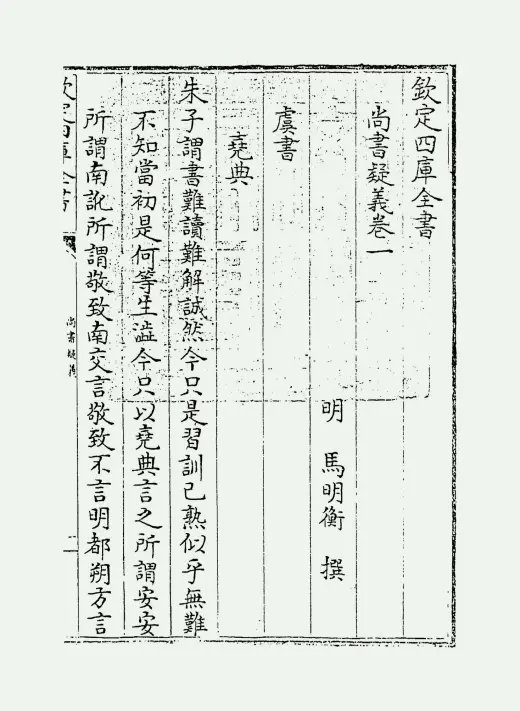 欽定四庫全書
尚書疑義卷一
明 馬明衡 撰
虞書
堯典
朱子謂書難讀難解誠然今只是習訓已熟似乎無難
不知當初是何等生澁今只以堯典言之所謂安安
所謂南訛所謂敬致南交言敬致不言明都朔方言
欽定四庫全書
尚書疑義
一